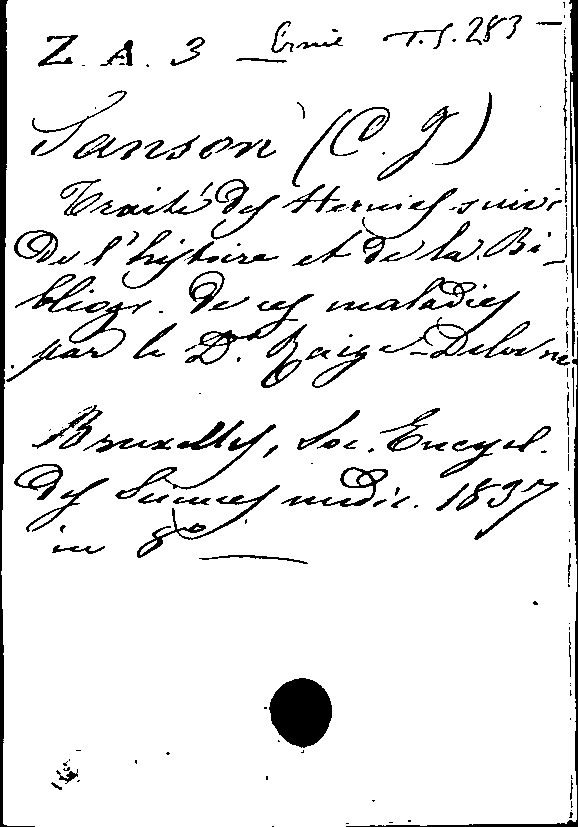 Z. A. 3 Ernie T.S. 283 -
Sanson (C. J)
Traité des Hernies suivi
de l'histoire et de la Bi-
bliogr. de ces maladies
par le Dr. Raige-Delorme
Bruxelles, Soc. Encycl.
des Sciences médic. 1837
in 8°